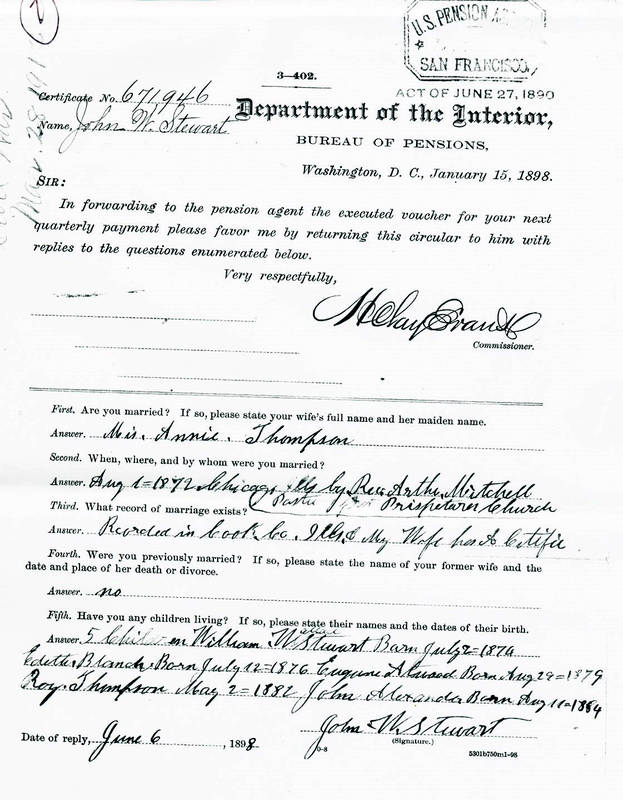 2
U.S. PENSION
SAN FRANCISCO.
3—402.
ACT OF JUNE 27, 1890
Certificate No. 671,946
Department of the Interior,
Name, John W. Stewart
BUREAU OF PENSIONS,
Washington, D. C., January 15, 1898.
SIR:
In forwarding to the pension agent the executed voucher for your next
quarterly payment please favor me by returning this circular to him with
replies to the questions enumerated below.
Very respectfully,
H Clay Evans
Commissioner.
First. Are you married? If so, please state your wife's full name and her maiden name.
Answer. Mis. Annie. Thompson
Second. When, where, and by whom were you married?
Answer. Aug 1=1872 Chicago Ills by Rev Arthu Mitchell
Third. What record of marriage exists? (Paster Prispeteren Church
Answer. Recorded in Cook. Co. Ills & My Wife has A Cetifie
Fourth. Were you previously married? If so, please state the name of your former wife and the
date and place of her death or divorce.
Answer. no
Fifth. Have you any children living? If so, please state their names and the dates of their birth.
Answer. 5 Children William Wallace Stewart Barn July 2=1874
Edith Blanch Born July 12=1876. Eugene Atwood Born Aug 29=1879
Roy. Thompson May 2=1882 John Alexander Barn Aug 11=1884
John W. Stewart
Date of reply, June 6, 1898
(Signature.)
0-8
5301b750m1-98